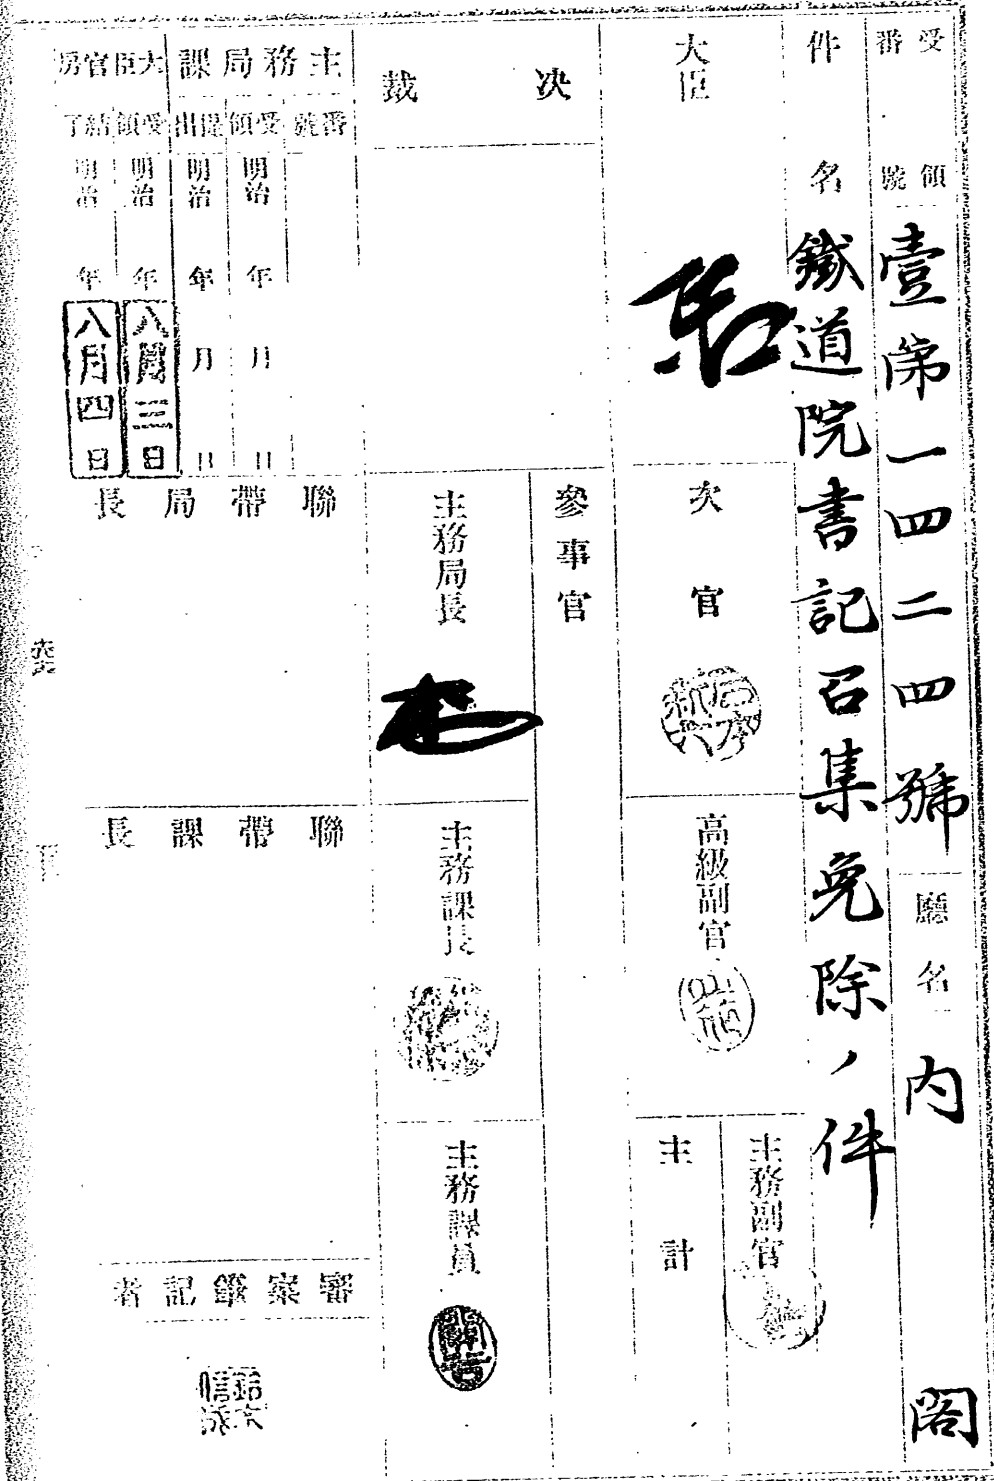 受領番號 壹第一四二四號 廳名 內閣
件名 鐵道院書記召集免除ノ件
大臣
次官
高級副官
主務副官
主計
決裁
參事官
主務局長
主務課長
主務課員
主務局課
番號
受領 明治 年 月 日
提出 明治 年 月 日
大臣官房
受領 明治 年 八月三日
結了 明治 年 八月四日
聯帶局長
聯帶課長
審案筆記者